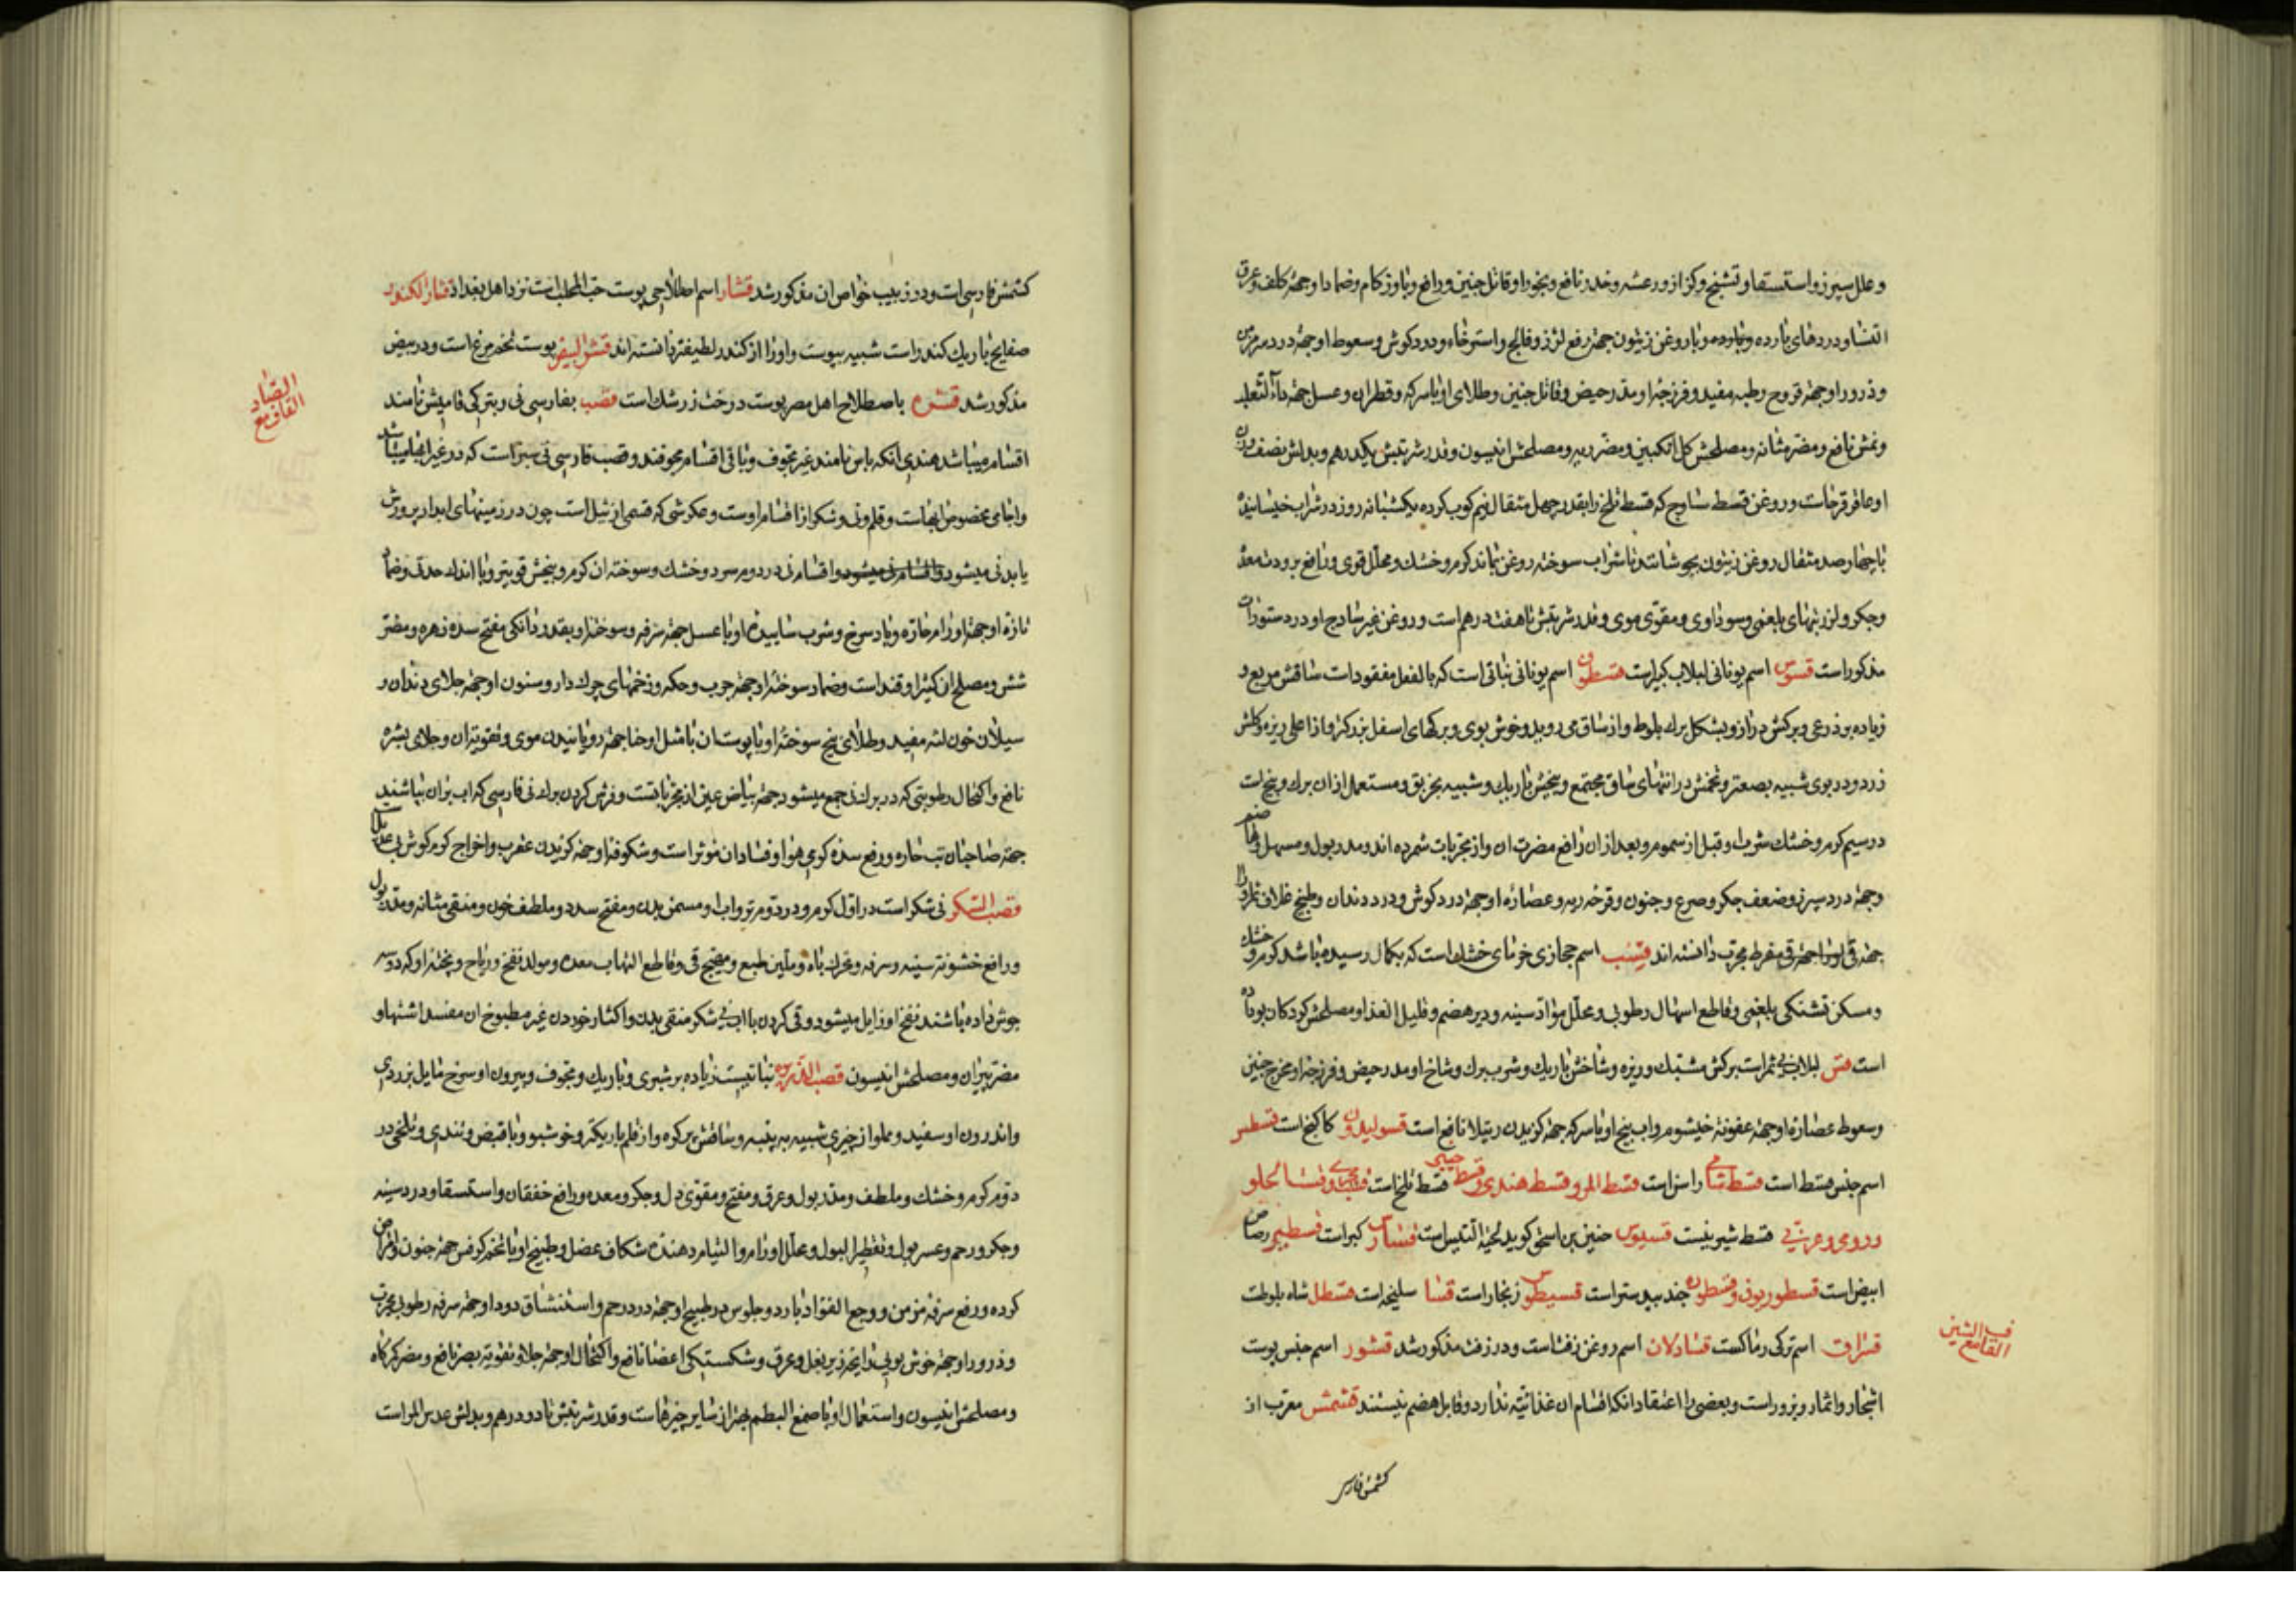 و علل سپرز و استسقا و تشنج و کزاز و رعشه و خدر نافع و بخور او قاتل جنین و رافع وبا و زکام و ضماد او جهة کلف و عرق
النسا و دردهای بارده و با روغن زیتون جهة رفع لرز و فالج و استرخاء و درد کوش و سعوط او جهة درد سر مزمن
و ذرور او جهة قروح رطبه مفید و فرزجهٔ او مدر حیض و قاتل جنین و طلای او با سرکه و قطران و عسل جهة داء الثعلب
و نمش نافع و مضر مثانه و مصلحش کل انکبین و مضر ریه و مصلحش انیسون و قدر شربتش یکدرهم و بدلش نصف وزن
او عاقرقرحاست و روغن قسط ساذج که قسط تلخ را بقدر چهل مثقال نیم کوب کرده یکشبانه روز در شراب خیسانیده
با چهار صد مثقال روغن زیتون بجوشانند تا شراب سوخته روغن بماند کرم و خشک و محلل قوی و رافع برودت معده
و جکر و لرز تبهای بلغمی و سوداوی و مقوی موی و قدر شربتش تا هفت درهم است و روغن غیر ساذج او در دستورات
مذکور است قسوس اسم یونانی لبلاب کبیر است قسطرن اسم یونانی نباتی است که بالفعل مفقود است ساقش مربع و
زیاده بر ذرعی و برکش دراز و بشکل برک بلوط و از ساق می روید و خوش بوی و برکهای اسفل بزرکتر و از اعلی ریزه و کلش
زرد و در بوی شبیه بصعتر و تخمش در انتهای ساق مجتمع و بیخش باریک و شبیه بخربق و مستعمل از ان برک و بیخ است
در سیم کرم و خشک شرب او قبل از سموم و بعد از ان رافع مضرت ان و از مجربات شمرده اند و مدر بول و مسهل و هاضم
و جهة درد سپرز و ضعف جکر و صرع و جنون و قرحه ریه و عصارهٔ او جهة درد کوش و درد دندان و طبیخ غلاف ثمر او را
جهة قی مفرط مجرب دانسته اند قسب اسم حجازی خرمای خشک است که بکمال رسیده باشد کرم و خشک
و مسکن تشنکی بلغمی و قاطع اسهال رطوبی و محلل مواد سینه و دیر هضم و قلیل الغذا و مصلحش کودکان بوداده
است قسن لبلاب بی ثمر است برکش مشتبک و ریزه و شاخش باریک و شرب برک و شاخ او مدر حیض و فرزجهٔ او مخرج جنین
و سعوط عصارهٔ او جهة عفونة خیشوم و اب بیخ او با سرکه جهة کزیدن رتیلا نافع است قسولیدون کاکنج است قسطس
اسم جنس قسط است قسط شامی راسن است قسط المر و قسط هندی و قسط چینی قسط تلخ است قسط بحری و قسط حلو
و رومی و عربی قسط شیرینست قسیوس حنین بن اسحق کوید لحیة التیس است قسار کبر است قسطیر رصاص
ابیض است قسطوریون و قسطون جندبیدستر است قسیطوس زنجار است قسا سلیخه است قسطل شاه بلوطست
قشراق اسم ترکی رماکست قشادلان اسم روغن زفتاست و در زفت مذکور شد قشور اسم جنس پوست
اشجار و اثمار و بزور است و بعضی را اعتقاد انکه اقسام ان غذائیة ندارد و قابل هضم نیستند قشمش معرب از
کشمش فارسی
فی الشین
القاف مع
کشمش فارسی است و در زبیب خواص ان مذکور شد قشار اسم اصطلاحی پوست حب المحلب است نزد اهل بغداد قشار الکندر
صفایح باریک کندر است شبیه بپوست و او را از کندر لطیفتر دانسته اند قشر البیض پوست تخم مرغ است و در بیض
مذکور شد قشره باصطلاح اهل مصر پوست درخت زرشک است قصب بفارسی نی و بترکی قامیش نامند
اقسام میباشد هندی انکه بانس نامند غیر مجوف و باقی اقسام مجوفند و قصب فارسی نی سبز است که در غیر
و اجامی مخصوص انجاست و قلم و نی و شکر از اقسام اوست و عکرشی که قسمی از ثیل است چون در زمینهای ابدار پرورش
یابد نی میشود و اقسام نی در دوم سرد و خشک و سوخته ان کرم و بیخش قویتر و با اندک حدتی و ضماد
تازهٔ او جهة اورام حاره و باد سرخ و شرب ساییدهٔ او با عسل جهة سرفه و سوختهٔ او بقدر دانکی مفتح سده زهره و مضر
شش و مصلح ان کتیرا و قند است و ضماد سوختهٔ او جهة جرب و حکه و زخمهای چرک دار و سنون او جهة جلای دندان و
سیلان خون لثه مفید و طلای بیخ سوختهٔ او با پوست ان با مثل او حنا جهة رویانیدن موی و تقویة ان و جلای بشره
نافع و اکتحال رطوبتی که در برک نی جمع میشود جهة بیاض عین از مجرباتست و فرش کردن برک نی فارسی که اب بران بپاشند
جهة صاحبان تب حاره و رفع سده کوی هوا و فساد ان موثر است و شکوفهٔ او جهة کزیدن عقرب و اخراج کرم کوش بی عدیل
قصب السکر نی شکر است در اول کرم و در دوم تر و اب او مسمن بدن و مفتح سدد و ملطف خون و منقی مثانه و مدر بول
و رافع خشونة سینه و سرفه و محرک باه و ملین طبع و مهیج قی و قاطع التهاب معده و مولد نفخ و ریاح و پختهٔ او که دو سه
جوش داده باشند نفخ او زایل میشود و قی کردن با اب نی شکر منقی بدن و اکثار خوردن غیر مطبوخ ان مفسد اشتها و
مضر پیران و مصلحش انیسون قصب الذریره نباتیست زیاده بر شبری و باریک و مجوف و بیرون او سرخ مایل بزردی
و اندرون او سفید و مملو از چیزی شبیه به پنبه و ساقش پر کره و از قلم باریکتر و خوشبو و با قبض و تندی و تلخی در
دوم کرم و خشک و ملطف و مدر بول و عرق و مفتح و مقوی دل و جکر و معده و رافع خفقان و استسقا و درد سینه
و جکر و رحم و عسر بول و تقطیر البول و محلل اورام و التیام دهندهٔ شکاف عضل و طبیخ او با تخم کرفس جهة جنون و امراض
کرده و رفع سرفه مزمن و وجع الفواد بارد و جلوس در طبیخ او جهة درد رحم و استنشاق دود او جهة سرفه رطوبی مجرب
و ذرور او جهة خوش بویی رایحه زیر بغل و عرق و شکستکی اعضا نافع و اکتحال او جهة جلا و تقویة بصر نافع و مضر کرکاه
و مصلحش انیسون و استعمال او با صمغ البطم بهتر از سایر چیزهاست و قدر شربتش تا دو درهم و بدلش عدس المر است
الصاد
القاف مع